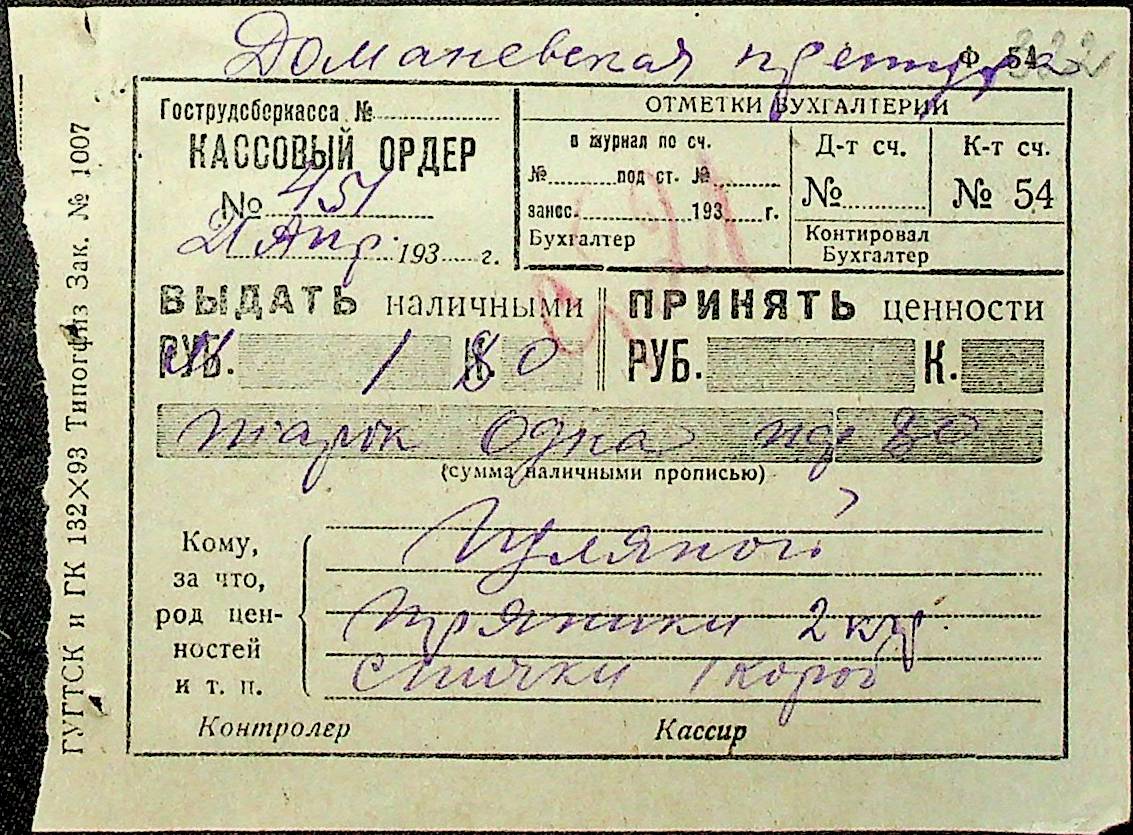 Доманевская претура Ф. 54 322
Гострудсберкасса №
КАССОВЫЙ ОРДЕР
№ 451
21 Апр. 193 г.
ОТМЕТКИ БУХГАЛТЕРИИ
в журнал по сч.
№ под ст. №
занес. 193 г.
Бухгалтер
Д-т сч.
№
К-т сч.
№ 54
Контировал
Бухгалтер
ВЫДАТЬ наличными
РУБ. 1 К. 80
ПРИНЯТЬ ценности
РУБ. К.
марок одна пф 80
(сумма наличными прописью)
Кому,
за что,
род цен-
ностей
и т. п.
Гуляной
Пряники 2 кгр.
Спички 1 короб
Контролер Кассир
ГУГТСК и ГК 132×93 Типогогиз Зак. № 1007